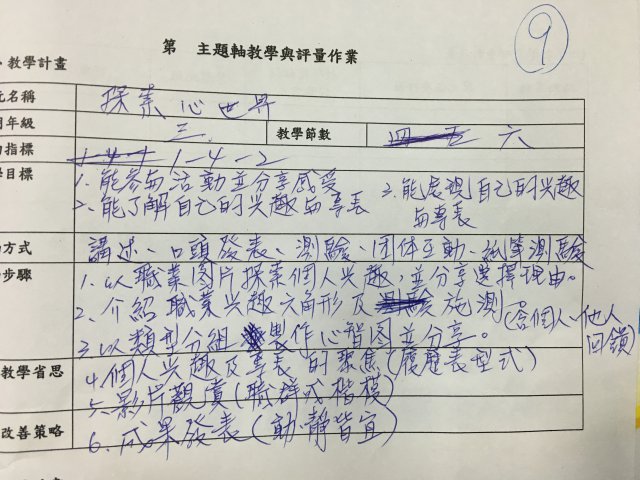 第 主題軸教學與評量作業
9
、教學計畫
元名稱 探索心世界
年級 三 教學節數 六
指標 1-4-2
目標 1.能參與活動並分享感受 3.能展現自己的兴趣
2.能了解自己的兴趣與專長 與專長
方式 講述、口頭發表、測驗、团体互動、紙筆測驗
步驟 1.以職業图片探索個人兴趣,並分享選擇理由。
2.介紹職業兴趣六角形及施測(含個人、他人
回饋)
3.以類型分組製作心智图並分享。
教學省思 4.個人兴趣及專長的聚焦(履歷表型式)
5.影片觀賞(職群或楷模)
改善策略 6.成果發表(動靜皆宜)